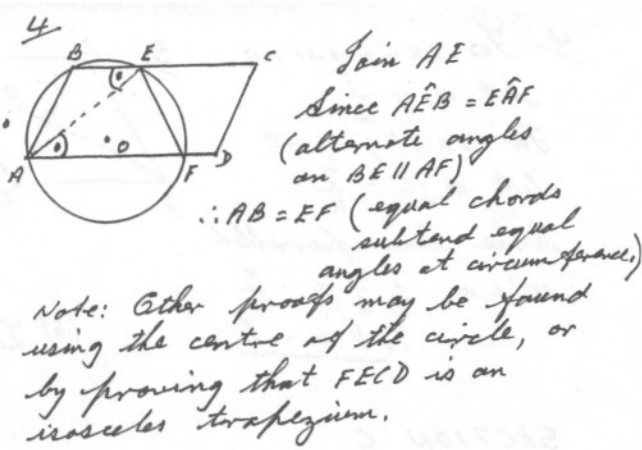 4
B E C
A O F D
Join AE
Since AÊB = EÂF
(alternate angles
on BE || AF)
∴ AB = EF (equal chords
subtend equal
angles at circumference.)
Note: Other proofs may be found
using the centre of the circle, or
by proving that FECD is an
isosceles trapezium.